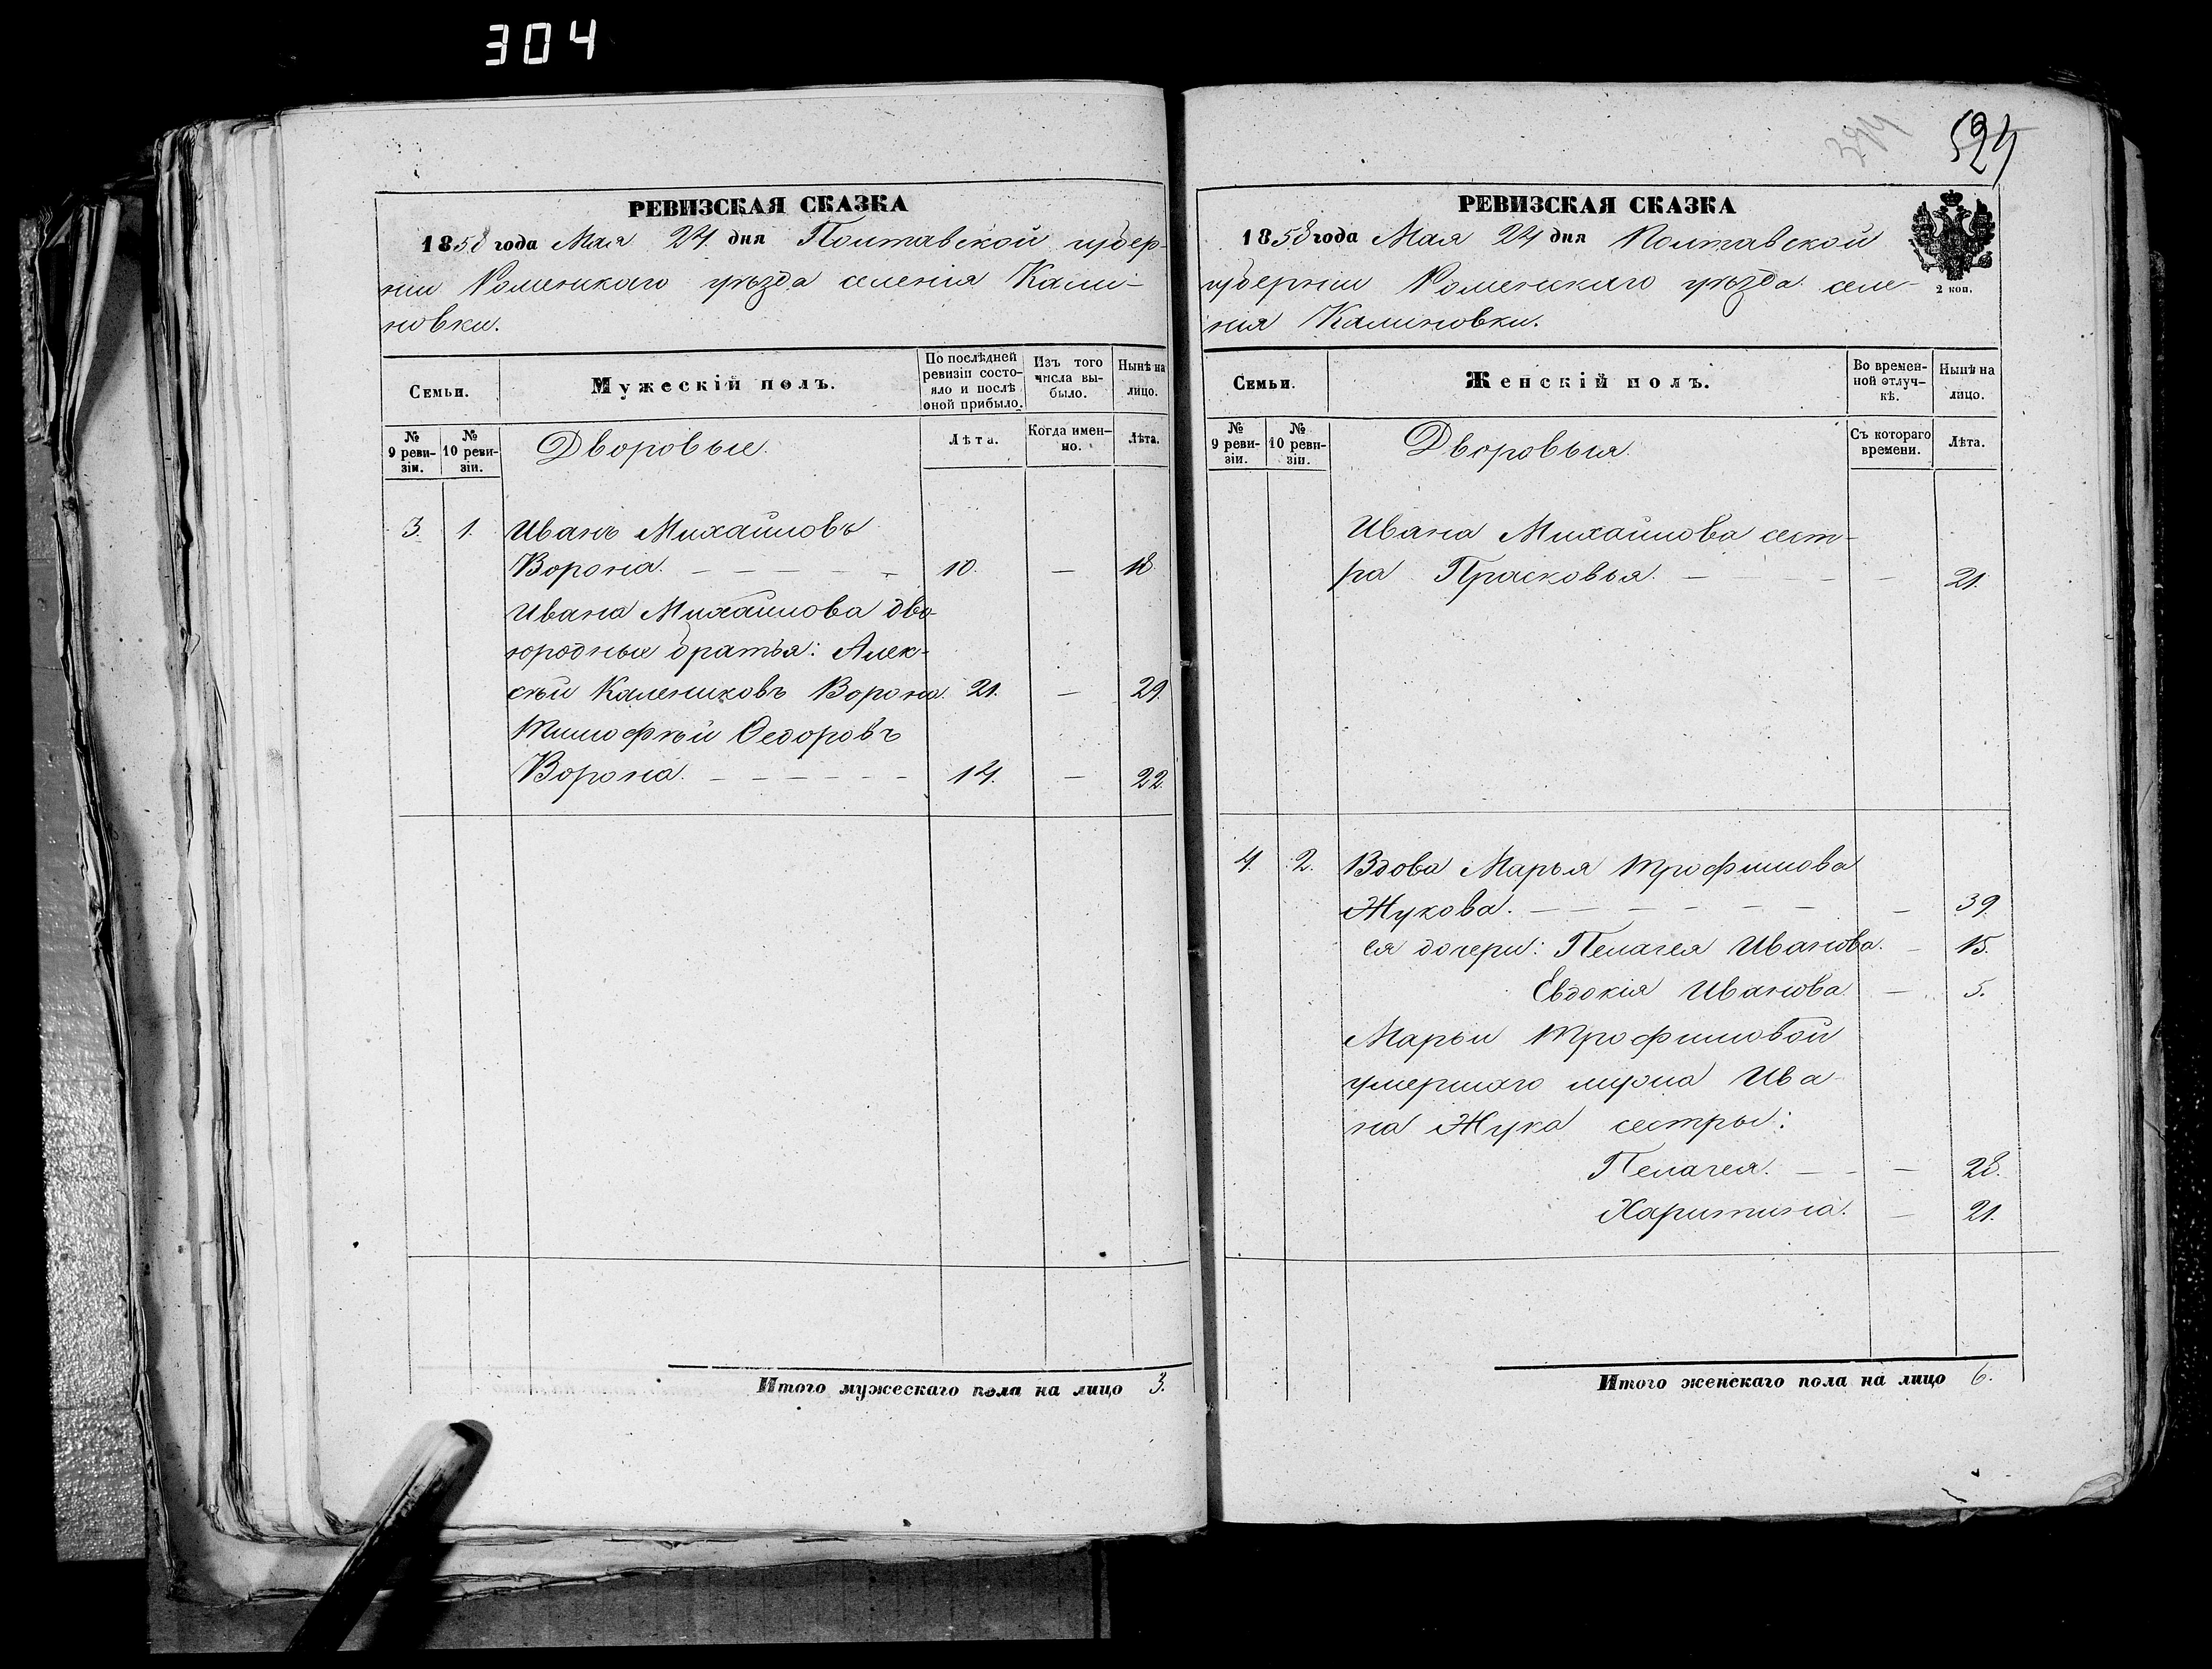 304
РЕВИЗСКАЯ СКАЗКА
1858 года Мая 24 дня Полтавской губер-
ніи Роменскаго уѣзда селенія Кали-
новки.
Семьи.
Мужескій полъ.
По послѣдней ревизіи состо-
яло и послѣ оной прибыло.
Изъ того числа вы-
было.
Нынѣ на лицо.
№ 9 реви-
зіи.
№ 10 реви-
зіи.
Дворовые.
Лѣта.
Когда имен-
но.
Лѣта.
3. 1. Иванъ Михайловъ
Ворона. — — — — — 10. — 18
Ивана Михайлова дво-
юродные братья: Алек-
сѣй Калениковъ Ворона 21. — 29.
Тимофѣй Ѳедоровъ
Ворона. — — — — — — 14. — 22.
Итого мужескаго пола на лицо 3.
524
РЕВИЗСКАЯ СКАЗКА
1858 года Мая 24 дня Полтавской
губерніи Роменскаго уѣзда селе-
нія Калиновки.
2 коп.
Семьи.
Женскій полъ.
Во времен-
ной отлуч-
кѣ.
Нынѣ на лицо.
№ 9 реви-
зіи.
№ 10 реви-
зіи.
Дворовыя.
Съ котораго времени.
Лѣта.
Ивана Михайлова сест-
ра Прасковья. — — — — 21.
4. 2. Вдова Марья Трофимова
Жукова. — — — — — — — 39
ея дочери: Пелагея Иванова. — 15.
Евдокія Иванова. — 5.
Марьи Трофимовой
умершаго мужа Ива-
на Жука сестры:
Пелагея. — — — 28.
Харитина. — 21.
Итого женскаго пола на лицо 6.